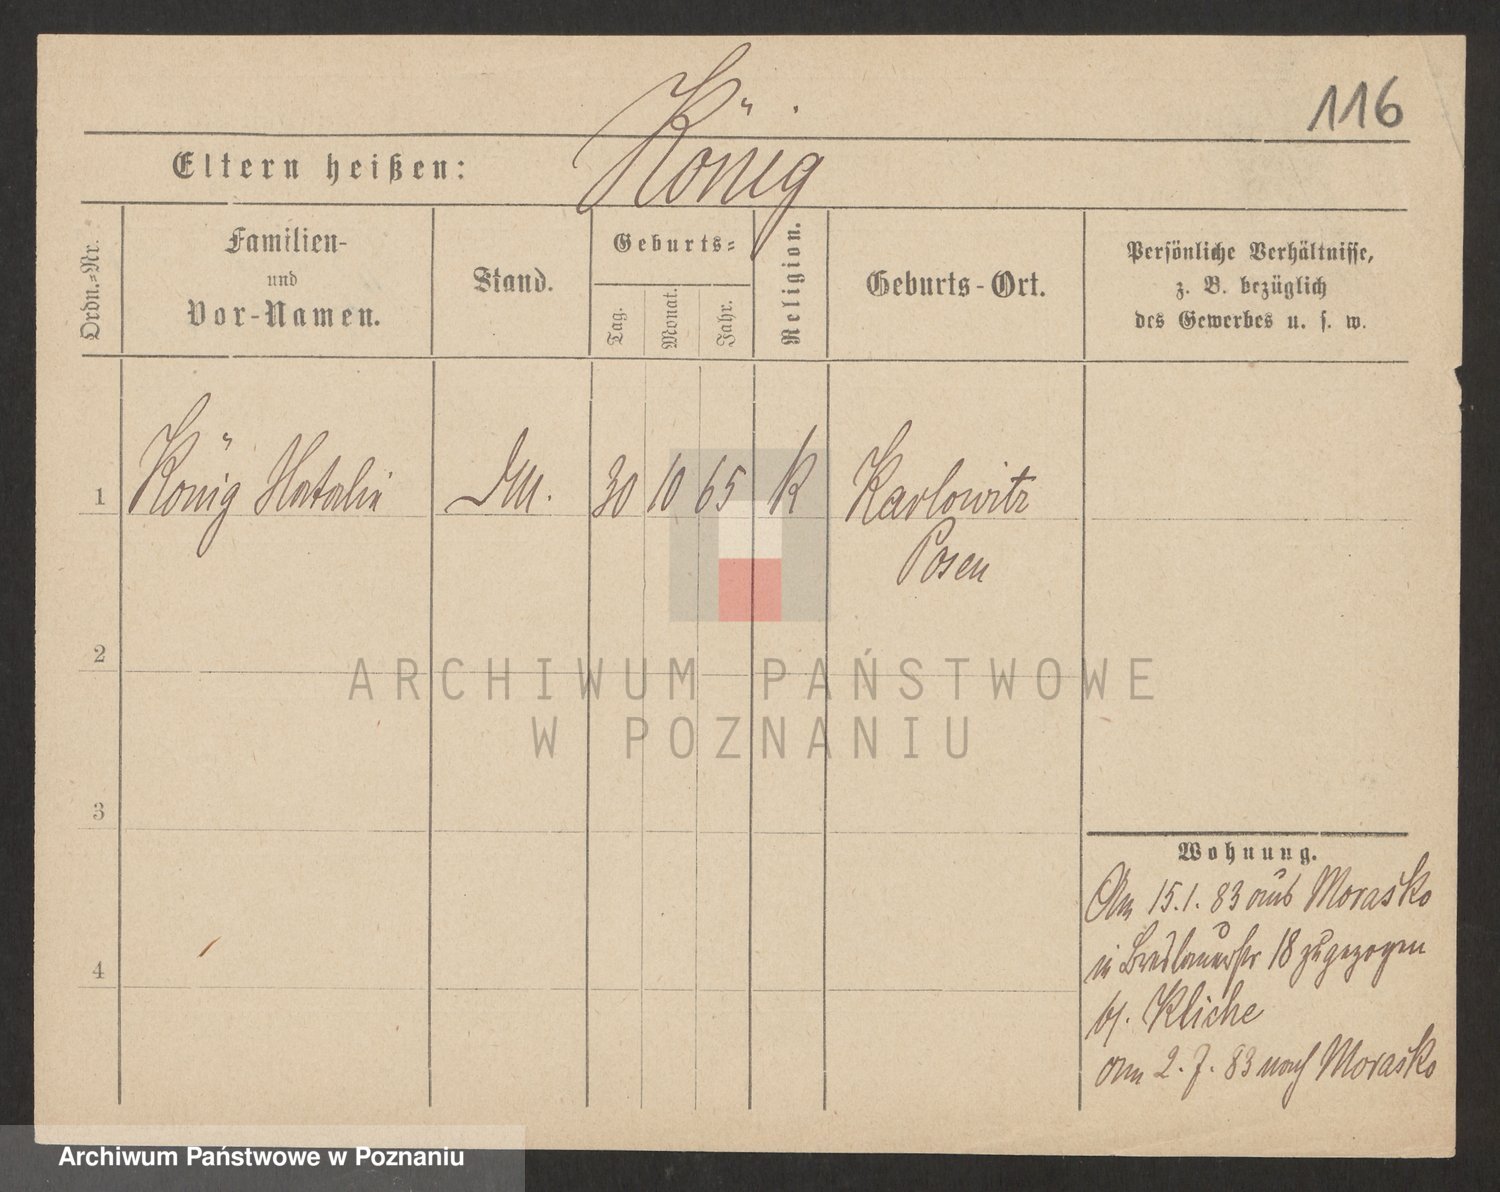 116
König
Eltern heißen:
Ordn.-Nr.
Familien-
und
Vor-Namen.
Stand.
Geburts=
Tag.
Monat.
Jahr.
Religion.
Geburts-Ort.
Persönliche Verhältnisse,
z. B. bezüglich
des Gewerbes u. s. w.
1 König Natalie DM. 30 10 65 K Karlowitz
Posen
2
ARCHIWUM PAŃSTWOWE
W POZNANIU
3
Wohnung.
Am 15.1. 83 aus Morasko
in Breslauerstr 18 zugezogen
4
bj. Kliche
am 2. 7. 83 nach Morasko
Archiwum Państwowe w Poznaniu